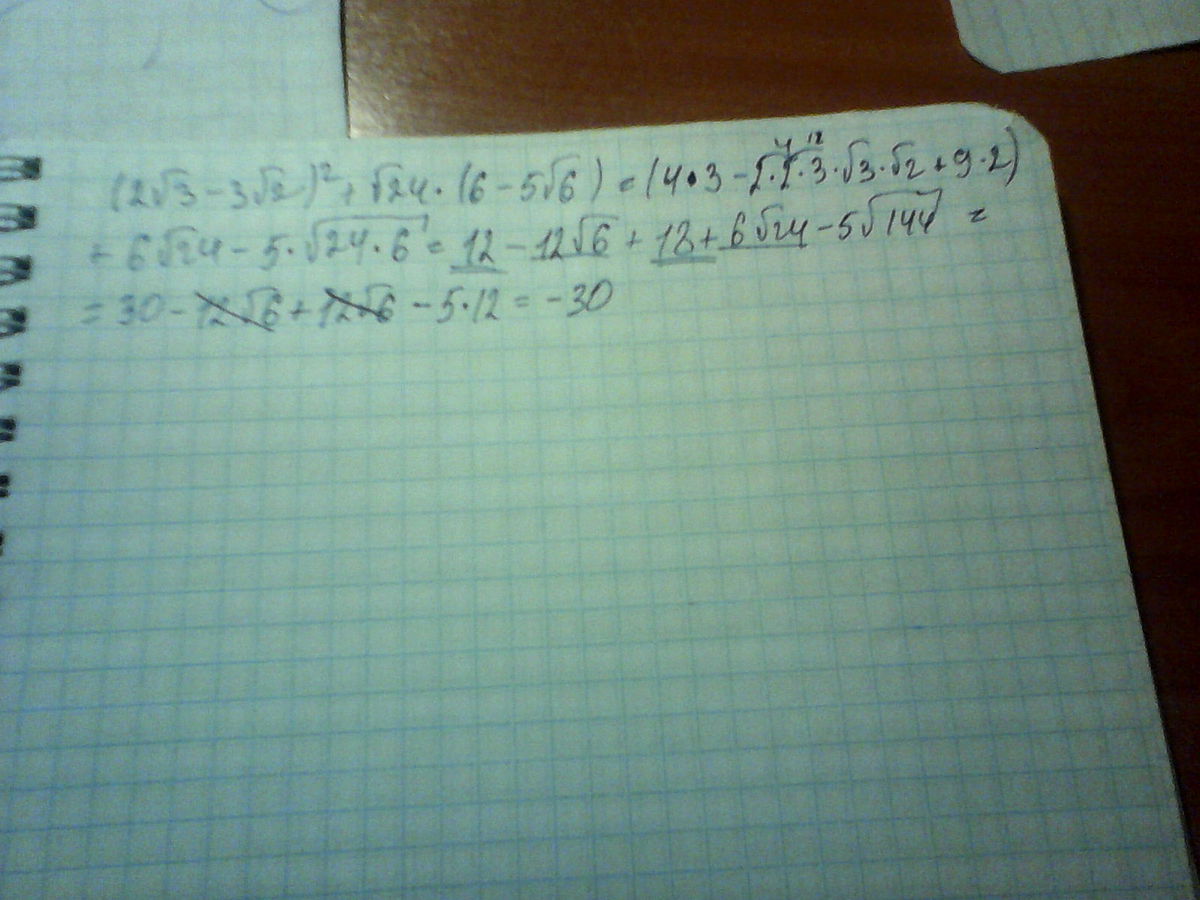 (2√3 - 3√2)² + √24 · (6 - 5√6) = (4·3 - 2·2·3·√3·√2 + 9·2)
4 12
+ 6√24 - 5·√24·6 = 12 - 12√6 + 18 + 6√24 - 5√144 =
= 30 - 12√6 + 12√6 - 5·12 = -30